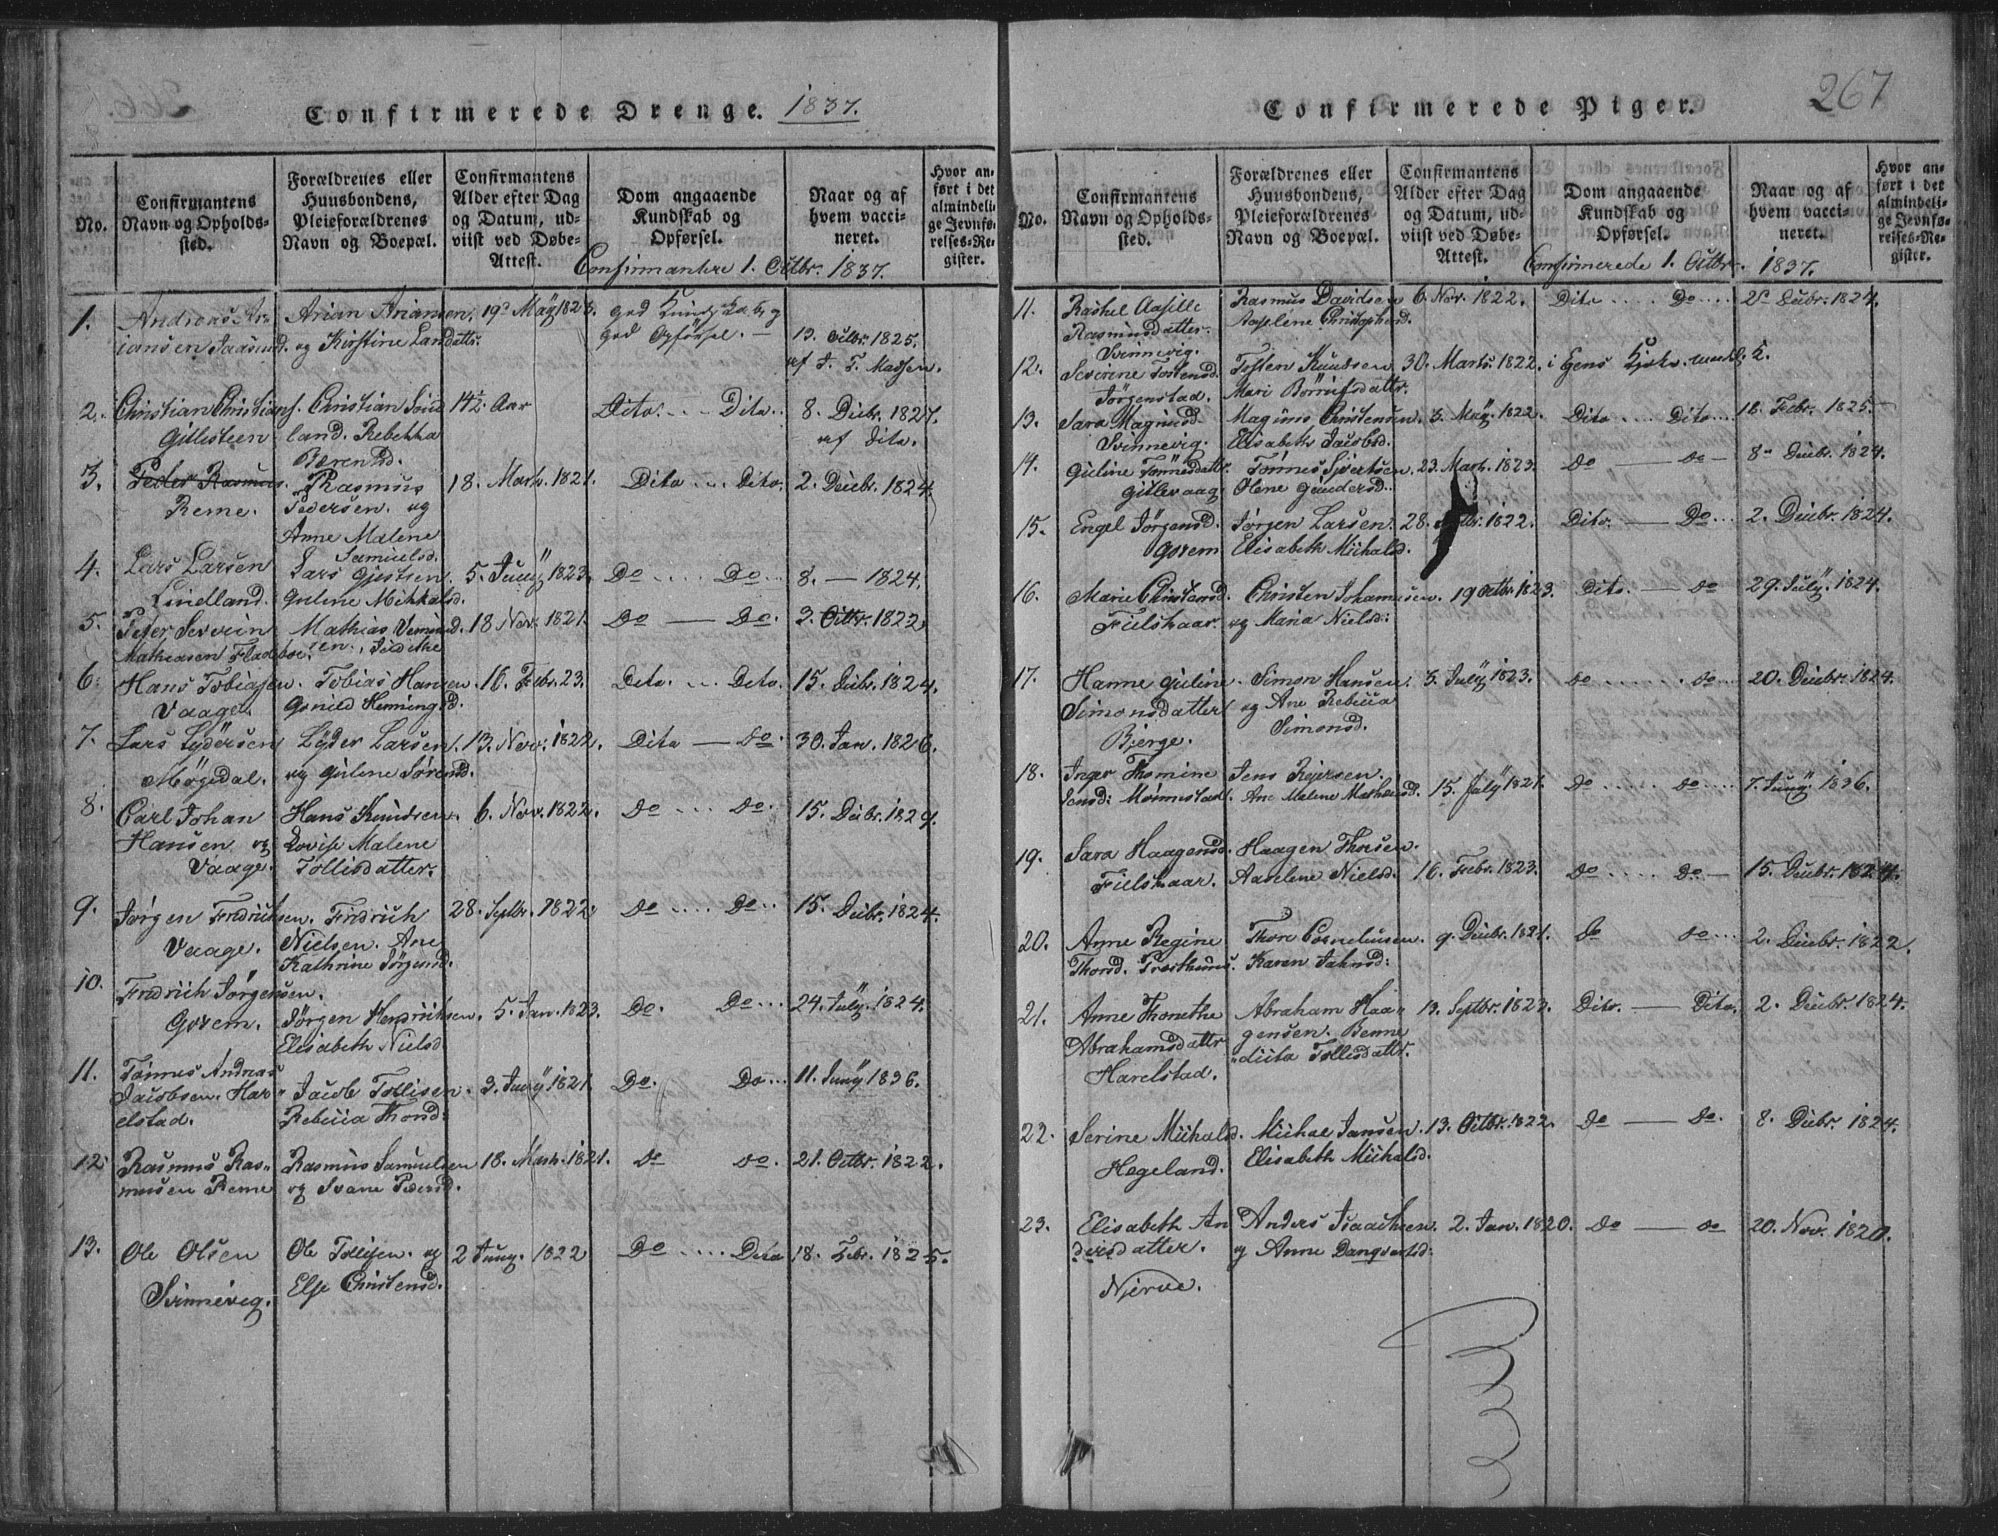 Confirmerede Drenge. 1837.
No.
Confirmantens Navn og Opholdssted.
Forældrenes eller Huusbondens, Pleieforældrenes Navn og Boepæl.
Confirmantens Alder efter Dag og Datum, udviist ved Døbe-Attest.
Dom angaaende Kundskab og Opførsel.
Naar og af hvem vaccineret.
Hvor anført i det almindelige Jevnførelses-Register.
Confirmantere 1. Octbr. 1837.
1. Andreas Ar- Arian Ariansen, 19de May 1823. god Kundskab og
iansen og Kirstine Landatts. god Opførsel. 13. Octbr. 1825.
af T. Madsen.
2. Christian Christians. Christian 14½ Aar Dito. Dito 8. Decbr. 1827.
Gitlesteen land. Rebekka af dito.
Bærentsd.
3. Peder Rasmus. Rasmus 18. Marts. 1821. Dito Dito. 2. Decbr. 1824.
Reme. Pedersen og
Anne Malene
Samuelsd.
4. Lars Larsen Lars Gjertsen 5. Juny 1823. Do Do 8. — 1824.
Lindland. Guline Mikkalsd.
5. Peder Severin Mathias 18 Nov. 1821. Do — Do. 3. Octbr. 1822
Mathiasen
6. Hans Tobiasen. Tobias Hansen 16. Febr. 23. Dito. Dito. 15. Decbr. 1824.
Vaage. Gunild Henningsd.
7. Lars Lydersen Lyder Larsen 13. Nov. 1822. Dito — Do. 30. Jan. 1826.
Møgedal. og Gulene Sørensd.
8. Carl Johan Hans Knudsen. 6. Nov. 1822. Do Do. 15. Decbr. 1824.
Hansen Lovise Malene
Vaage. Tollisdatter.
9. Jørgen Fredrichsen. Fredrich 28. Septbr. 1822. Do Do 15. Decbr. 1824.
Vaage. Nielsen. Ane
Kathrine Jørgensd.
10. Fredrich Jørgensen.
Gosem. Jørgen Hendrichsen. 5. Jan. 1823. Do. Do 24. July. 1824.
Elisabeth Nielsd.
11. Tønnes Andreas
Jacobsen. Har- Jacob Tollisen. 3. Juny 1821. Do. Do 11. Juny 1836.
elstad. Rebecca Thorsd.
12. Rasmus Ras- Rasmus Samuelsen 18. Marts. 1821. Do Do. 21. Octbr. 1822.
mussen Reme og Svane Pedersd.
13. Ole Olsen Ole Tollisen. og 2 Juny. 1822 Do Dito 18. Febr. 1825.
Svinnevig. Else Christensd.
Confirmerede Piger. 267
No.
Confirmantens Navn og Opholdssted.
Forældrenes eller Huusbondens, Pleieforældrenes Navn og Boepæl.
Confirmantens Alder efter Dag og Datum, udviist ved Døbe-Attest.
Dom angaaende Kundskab og Opførsel.
Naar og af hvem vaccineret.
Hvor anført i det almindelige Jevnførelses-Register.
Confirmerede 1. Octbr. 1837.
11. Rachel Rasmus Davidsen 6. Nov. 1822. Dito Do Decbr. 1824.
Rasmusdatter. Aaselene Christophersd.
Svinnevig.
12. Severine Tostensd. Tosten Knudsen 30. Marts. 1822.
Jørgenstad. Mari Børrufsdattr.
13. Sara Magnusd. Magnus Christensen 3. May. 1822. Dito Dito 18. Febr. 1825.
Svinnevig. Elisabeth Jacobsd.
14. Guline Tønnesdattr. Tønnes Sivertsen. 23. Marts. 1823. Do — Do 8. Decbr. 1824.
Gitlevaag Olene Gundersd.
15. Engel Jørgensd. Jørgen Larsen. 28. 1822. Dito. — Do 2. Decbr. 1824.
Gosem Elisabeth Michalsd.
16. Marie Christensd. Christen Johannesen. 19 Octbr. 1823. Dito. — Do 29. July. 1824.
Fielskaar. og Maria Nielsd:
17. Hanne Guline Simon Hansen. 3. July 1823. Do Do 20. Decbr. 1824.
Simonsdatter og Ane Rebecca
Bierge. Simonsd.
18. Inger Thomine Jens Reiersen.
Jensd: Monnestad. Ane Malene Mathiasd. 15. July 1821. Do Do 7. Juny 1836.
19. Sara Haagensd. Haagen Thorsen.
Fielskaar. Aaselene Nielsd. 16. Febr. 1823. Do Do — 15. Decbr. 1824.
20. Anne Regine Thore Corneliusen. 9. Decbr. 1821. Do Do 2. Decbr. 1822.
Thorsd. Presthuus. Karen Jahnsd:
21. Anne Thonethe Abraham Haa- 13. Septbr. 1823. Dito. — Dito. 2. Decbr. 1824.
Abrahamsdattr gensen. Benne
Harelstad. dicta Tollisdattr.
22. Serine Michalsd. Michal Jansen. 13. Octbr. 1822. Do — Do. 8. Decbr. 1824.
Hægeland. Elisabeth Michalsd.
23. Elisabeth An Anders Isaachsen. 2. Jan. 1820. Do — Do 20. Nov. 1820.
dersdatter. og Anne Dangvartsd.
Nierve.